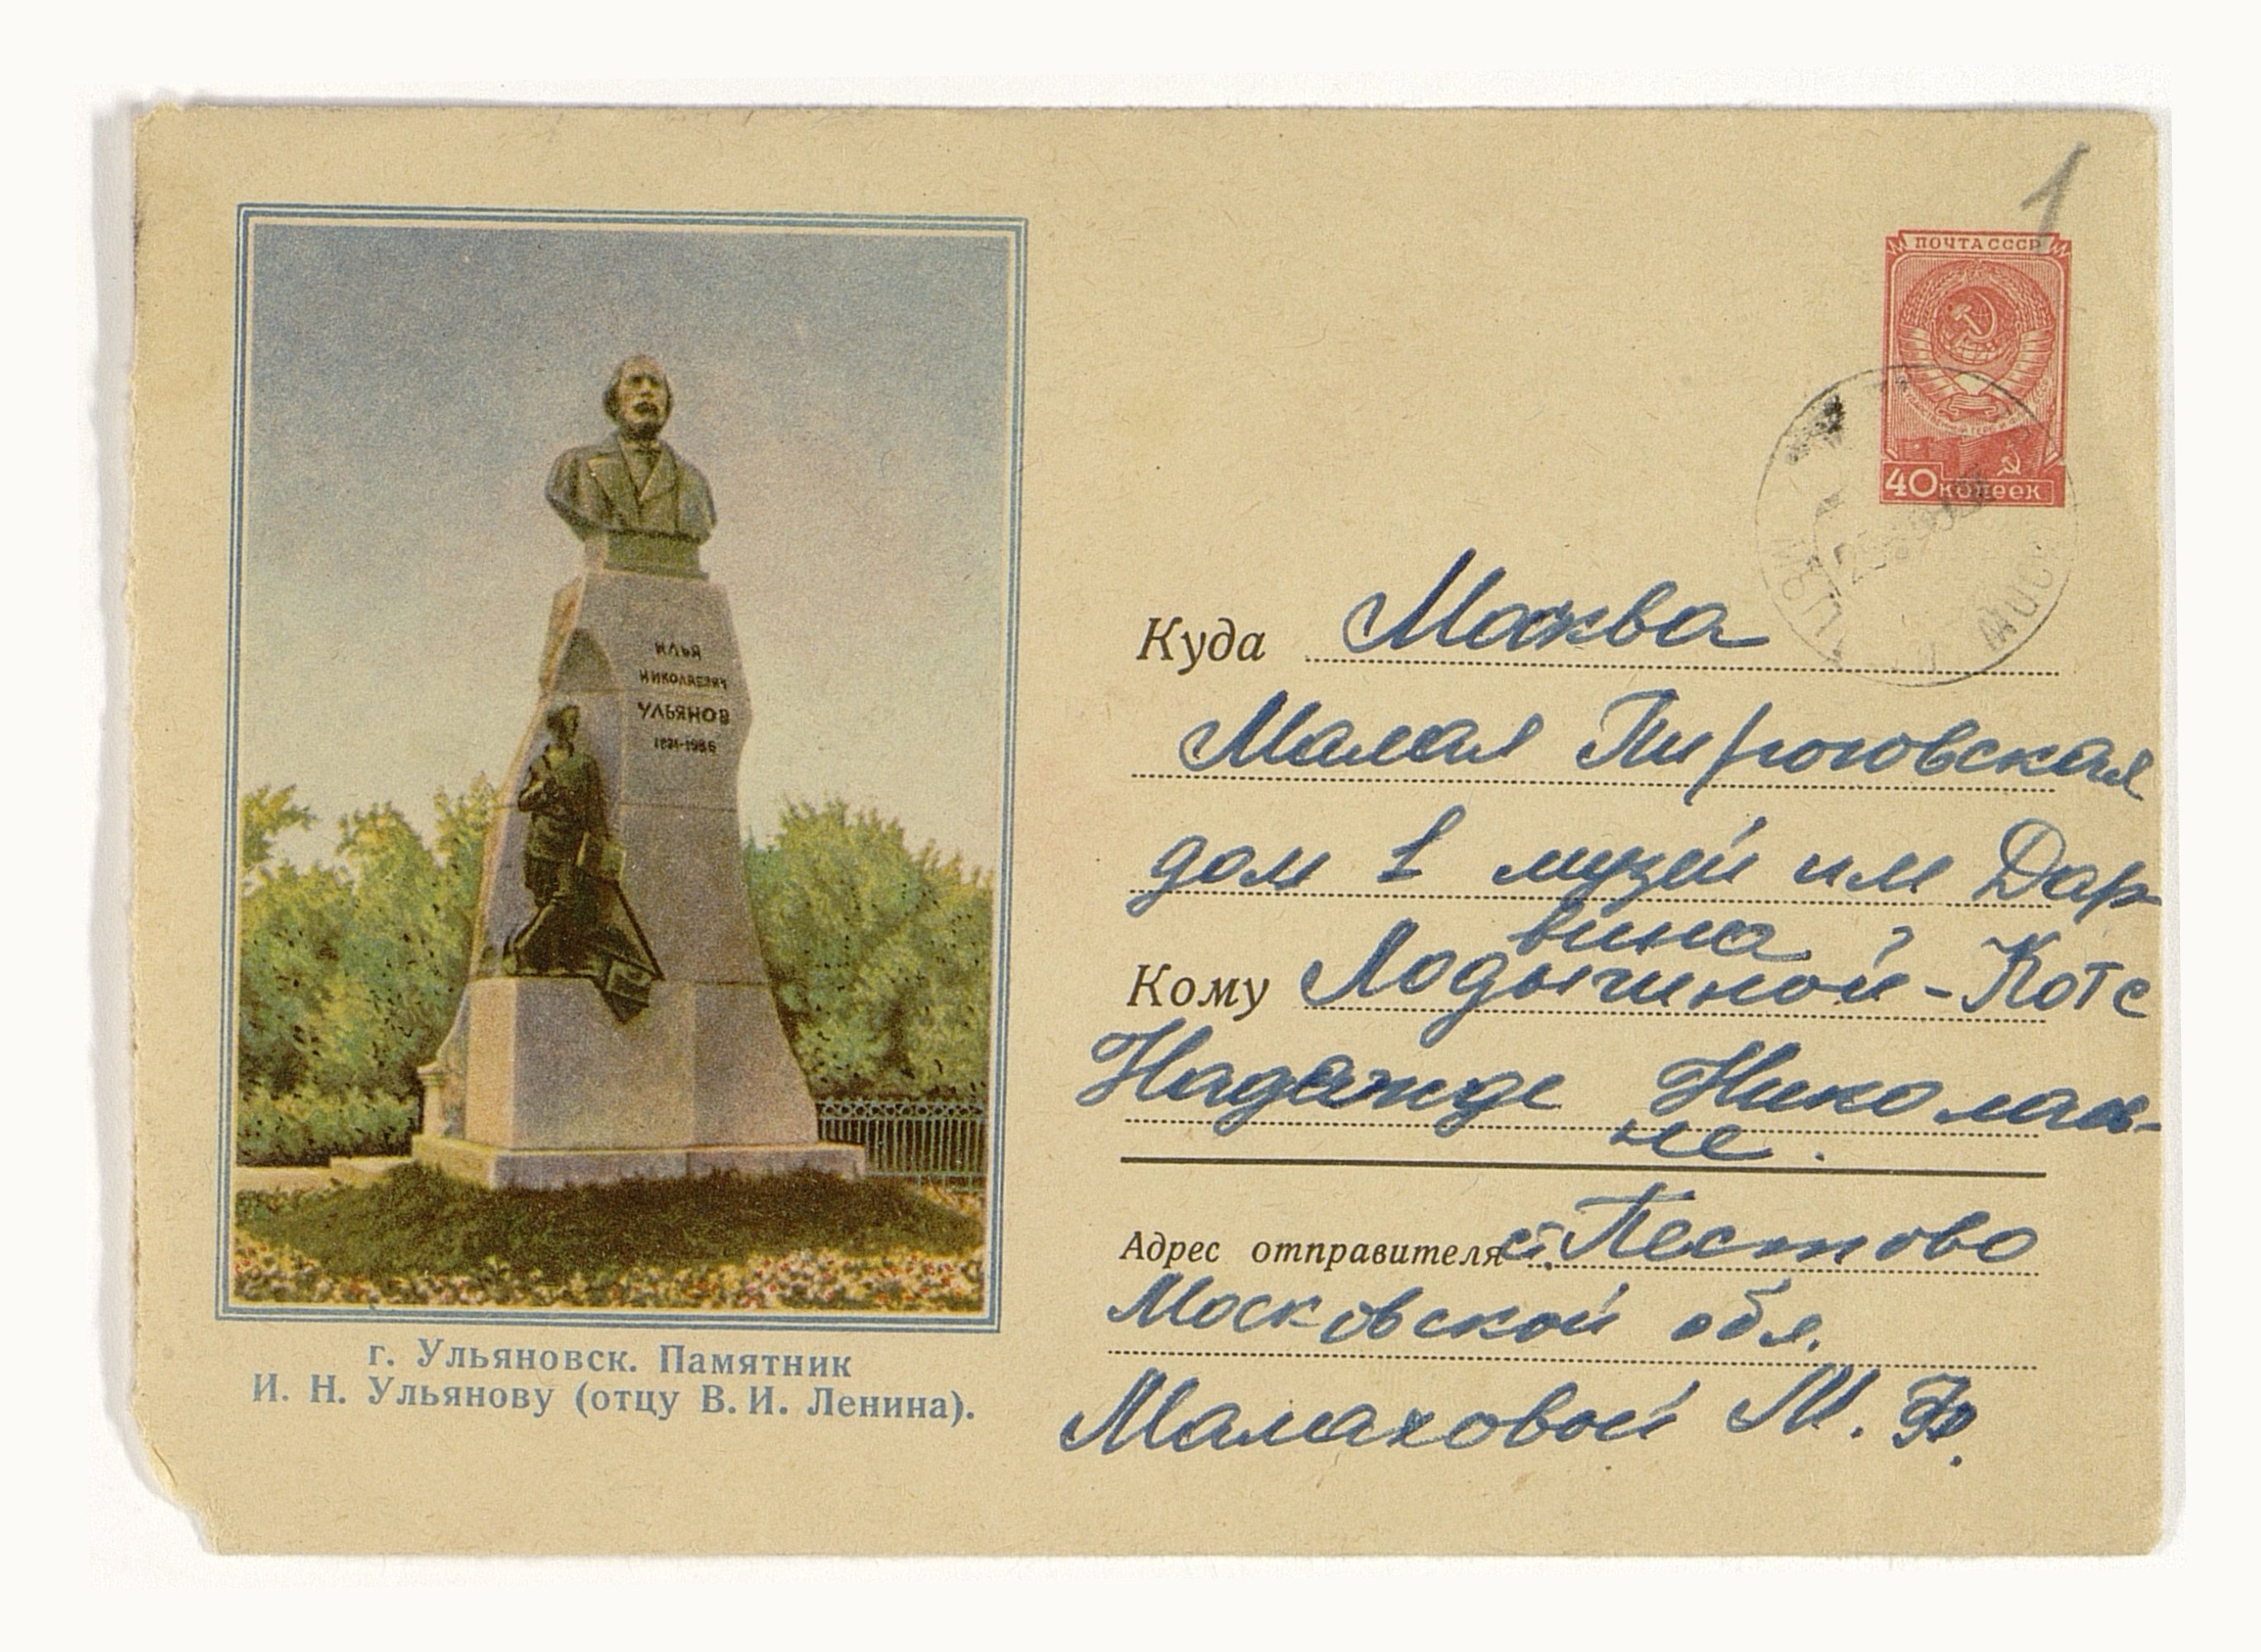 1
ПОЧТА СССР
40 копеек
ИЛЬЯ
НИКОЛАЕВИЧ
УЛЬЯНОВ
1831-1886
г. Ульяновск. Памятник
И. Н. Ульянову (отцу В. И. Ленина).
Куда Москва
Малая Пироговская
дом 1 музей им Дар-
вина
Кому Лодыгиной-Котс
Надежде Николаев-
не.
Адрес отправителя с. Пестово
Московской обл.
Малаховой М. Ф.